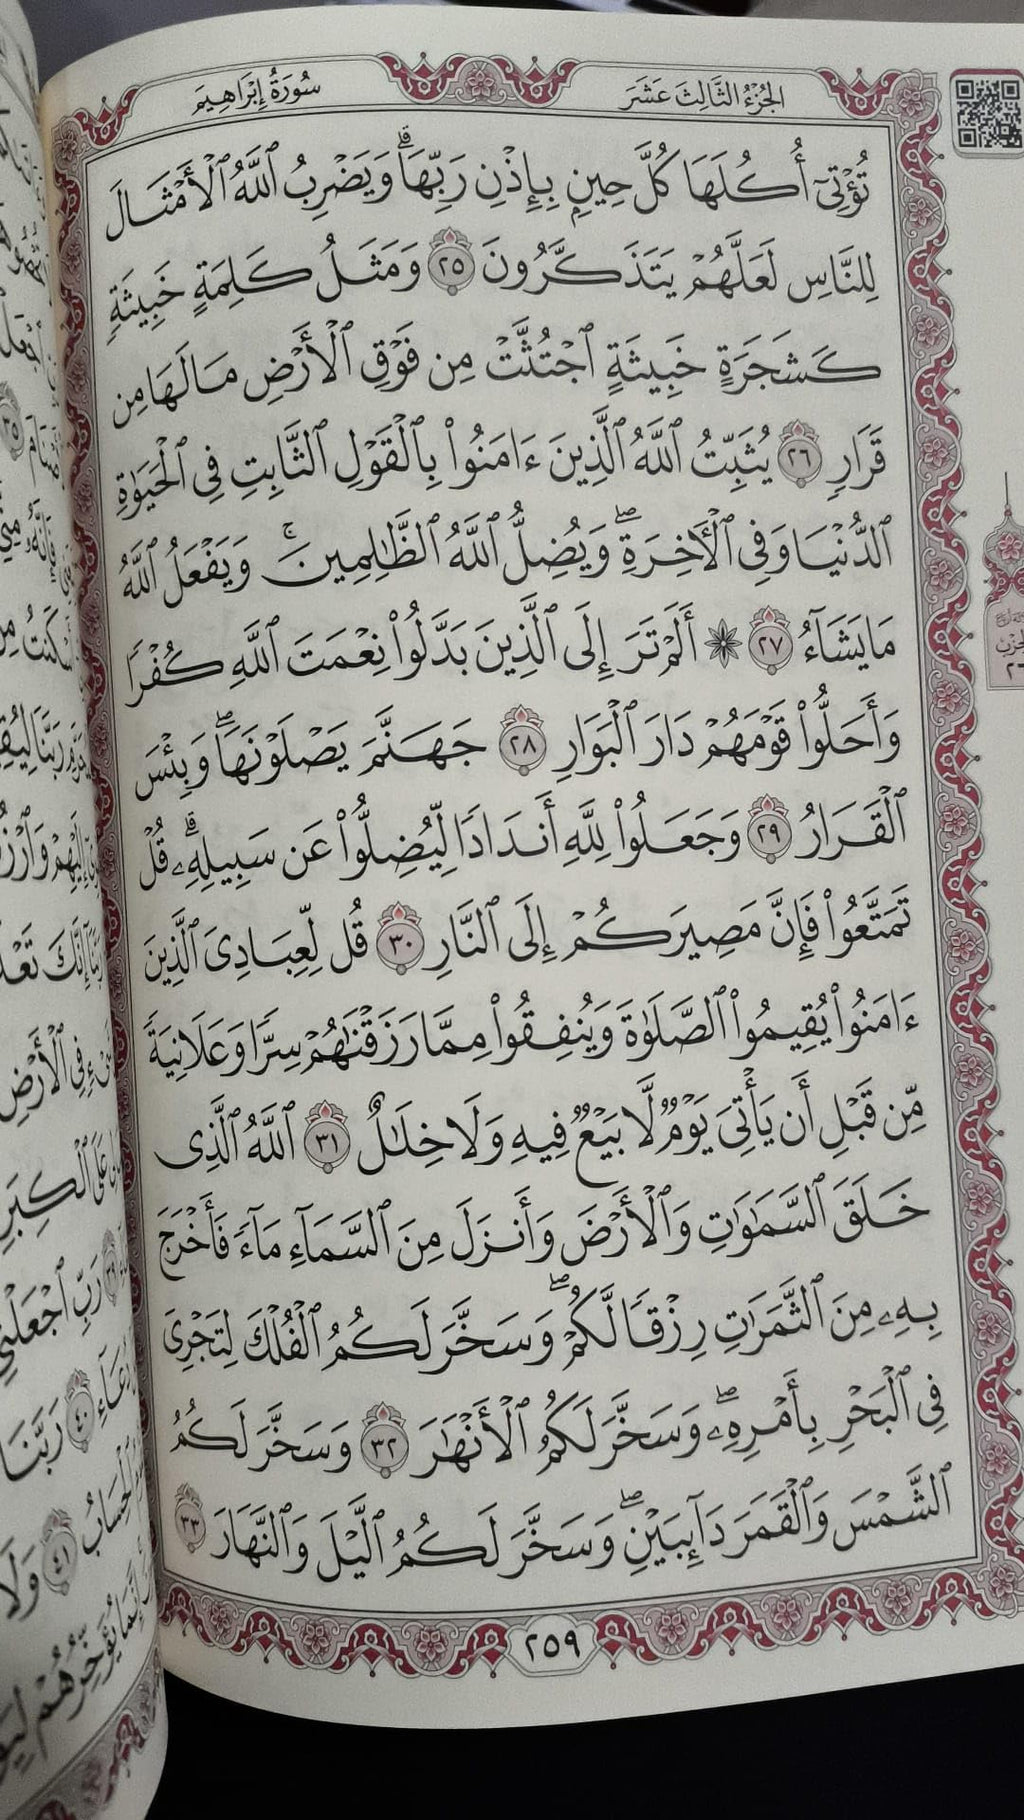 سُورَةُ إِبْرَاهِيمَ
الجُزْءُ الثَّالِثَ عَشَرَ
تُؤْتِىٓ أُكُلَهَا كُلَّ حِينٍۭ بِإِذْنِ رَبِّهَاۗ وَيَضْرِبُ ٱللَّهُ ٱلْأَمْثَالَ
لِلنَّاسِ لَعَلَّهُمْ يَتَذَكَّرُونَ ٢٥ وَمَثَلُ كَلِمَةٍ خَبِيثَةٍ
كَشَجَرَةٍ خَبِيثَةٍ ٱجْتُثَّتْ مِن فَوْقِ ٱلْأَرْضِ مَا لَهَا مِن
قَرَارٍ ٢٦ يُثَبِّتُ ٱللَّهُ ٱلَّذِينَ ءَامَنُوا۟ بِٱلْقَوْلِ ٱلثَّابِتِ فِى ٱلْحَيَوٰةِ
ٱلدُّنْيَا وَفِى ٱلْأَخِرَةِۖ وَيُضِلُّ ٱللَّهُ ٱلظَّٰلِمِينَۚ وَيَفْعَلُ ٱللَّهُ
مَا يَشَآءُ ٢٧ ۞ أَلَمْ تَرَ إِلَى ٱلَّذِينَ بَدَّلُوا۟ نِعْمَتَ ٱللَّهِ كُفْرًا
وَأَحَلُّوا۟ قَوْمَهُمْ دَارَ ٱلْبَوَارِ ٢٨ جَهَنَّمَ يَصْلَوْنَهَاۖ وَبِئْسَ
ٱلْقَرَارُ ٢٩ وَجَعَلُوا۟ لِلَّهِ أَندَادًا لِّيُضِلُّوا۟ عَن سَبِيلِهِۦۗ قُلْ
تَمَتَّعُوا۟ فَإِنَّ مَصِيرَكُمْ إِلَى ٱلنَّارِ ٣٠ قُل لِّعِبَادِىَ ٱلَّذِينَ
ءَامَنُوا۟ يُقِيمُوا۟ ٱلصَّلَوٰةَ وَيُنفِقُوا۟ مِمَّا رَزَقْنَٰهُمْ سِرًّا وَعَلَانِيَةً
مِّن قَبْلِ أَن يَأْتِىَ يَوْمٌ لَّا بَيْعٌ فِيهِ وَلَا خِلَٰلٌ ٣١ ٱللَّهُ ٱلَّذِى
خَلَقَ ٱلسَّمَٰوَٰتِ وَٱلْأَرْضَ وَأَنزَلَ مِنَ ٱلسَّمَآءِ مَآءً فَأَخْرَجَ
بِهِۦ مِنَ ٱلثَّمَرَٰتِ رِزْقًا لَّكُمْۖ وَسَخَّرَ لَكُمُ ٱلْفُلْكَ لِتَجْرِىَ
فِى ٱلْبَحْرِ بِأَمْرِهِۦۖ وَسَخَّرَ لَكُمُ ٱلْأَنْهَٰرَ ٣٢ وَسَخَّرَ لَكُمُ
ٱلشَّمْسَ وَٱلْقَمَرَ دَآئِبَيْنِۖ وَسَخَّرَ لَكُمُ ٱلَّيْلَ وَٱلنَّهَارَ ٣٣
٢٥٩